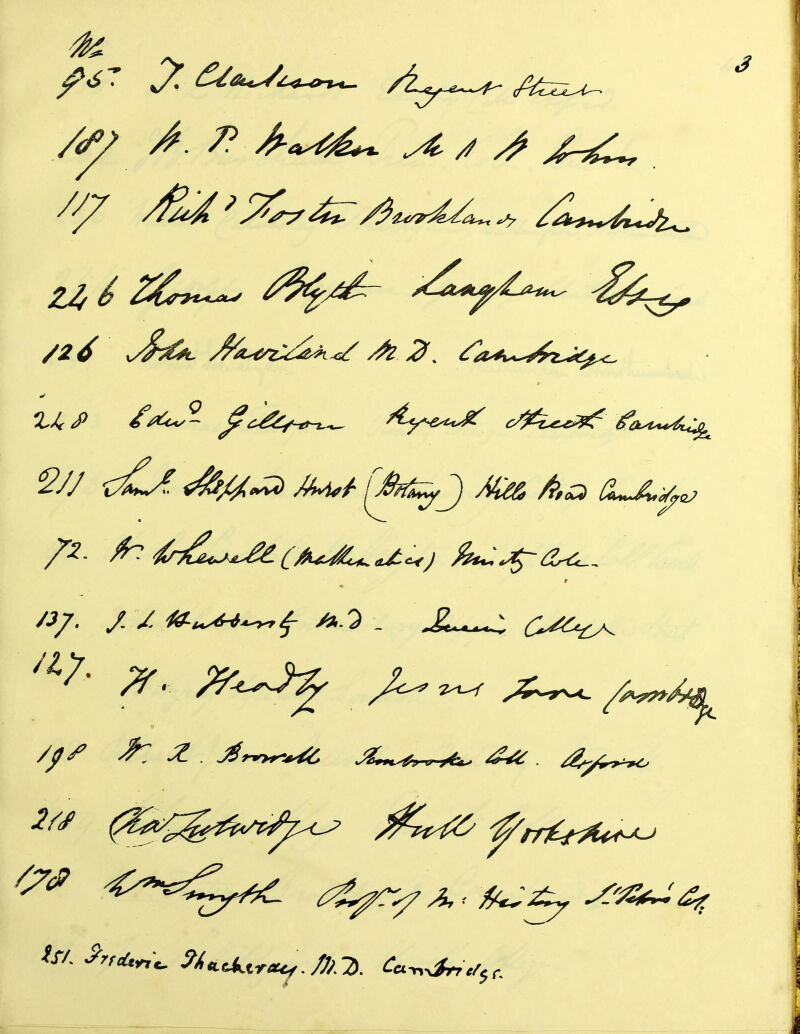 No.
3
95. J. Clarkson Regent Street
187 W. P. Walker M A St Johns.
117 Richd Foster Brooklands Cambridge
246 Thomas Blyth Langham Essex
126 John Haviland M.D. Cambridge
248 Edwd Gillson Regent Street Cambridge
211 Saml. Sheppard Hurst (Botany) Hills Road Cambridge
72. W. Whewell (Mathematics) Trinity Col.
137. J. L. Hubbersty M.D - Queens College
127. H. Headly Jesus Lane Cambridge
198 W. R. Browell Pembroke Coll. Oxford
218 Chas Lutwidge Hull Yorkshire
178 Wm Smyth Profr. of M: History St Peter's Col:
251. Frederic Thackeray. M.D. Cambridge.